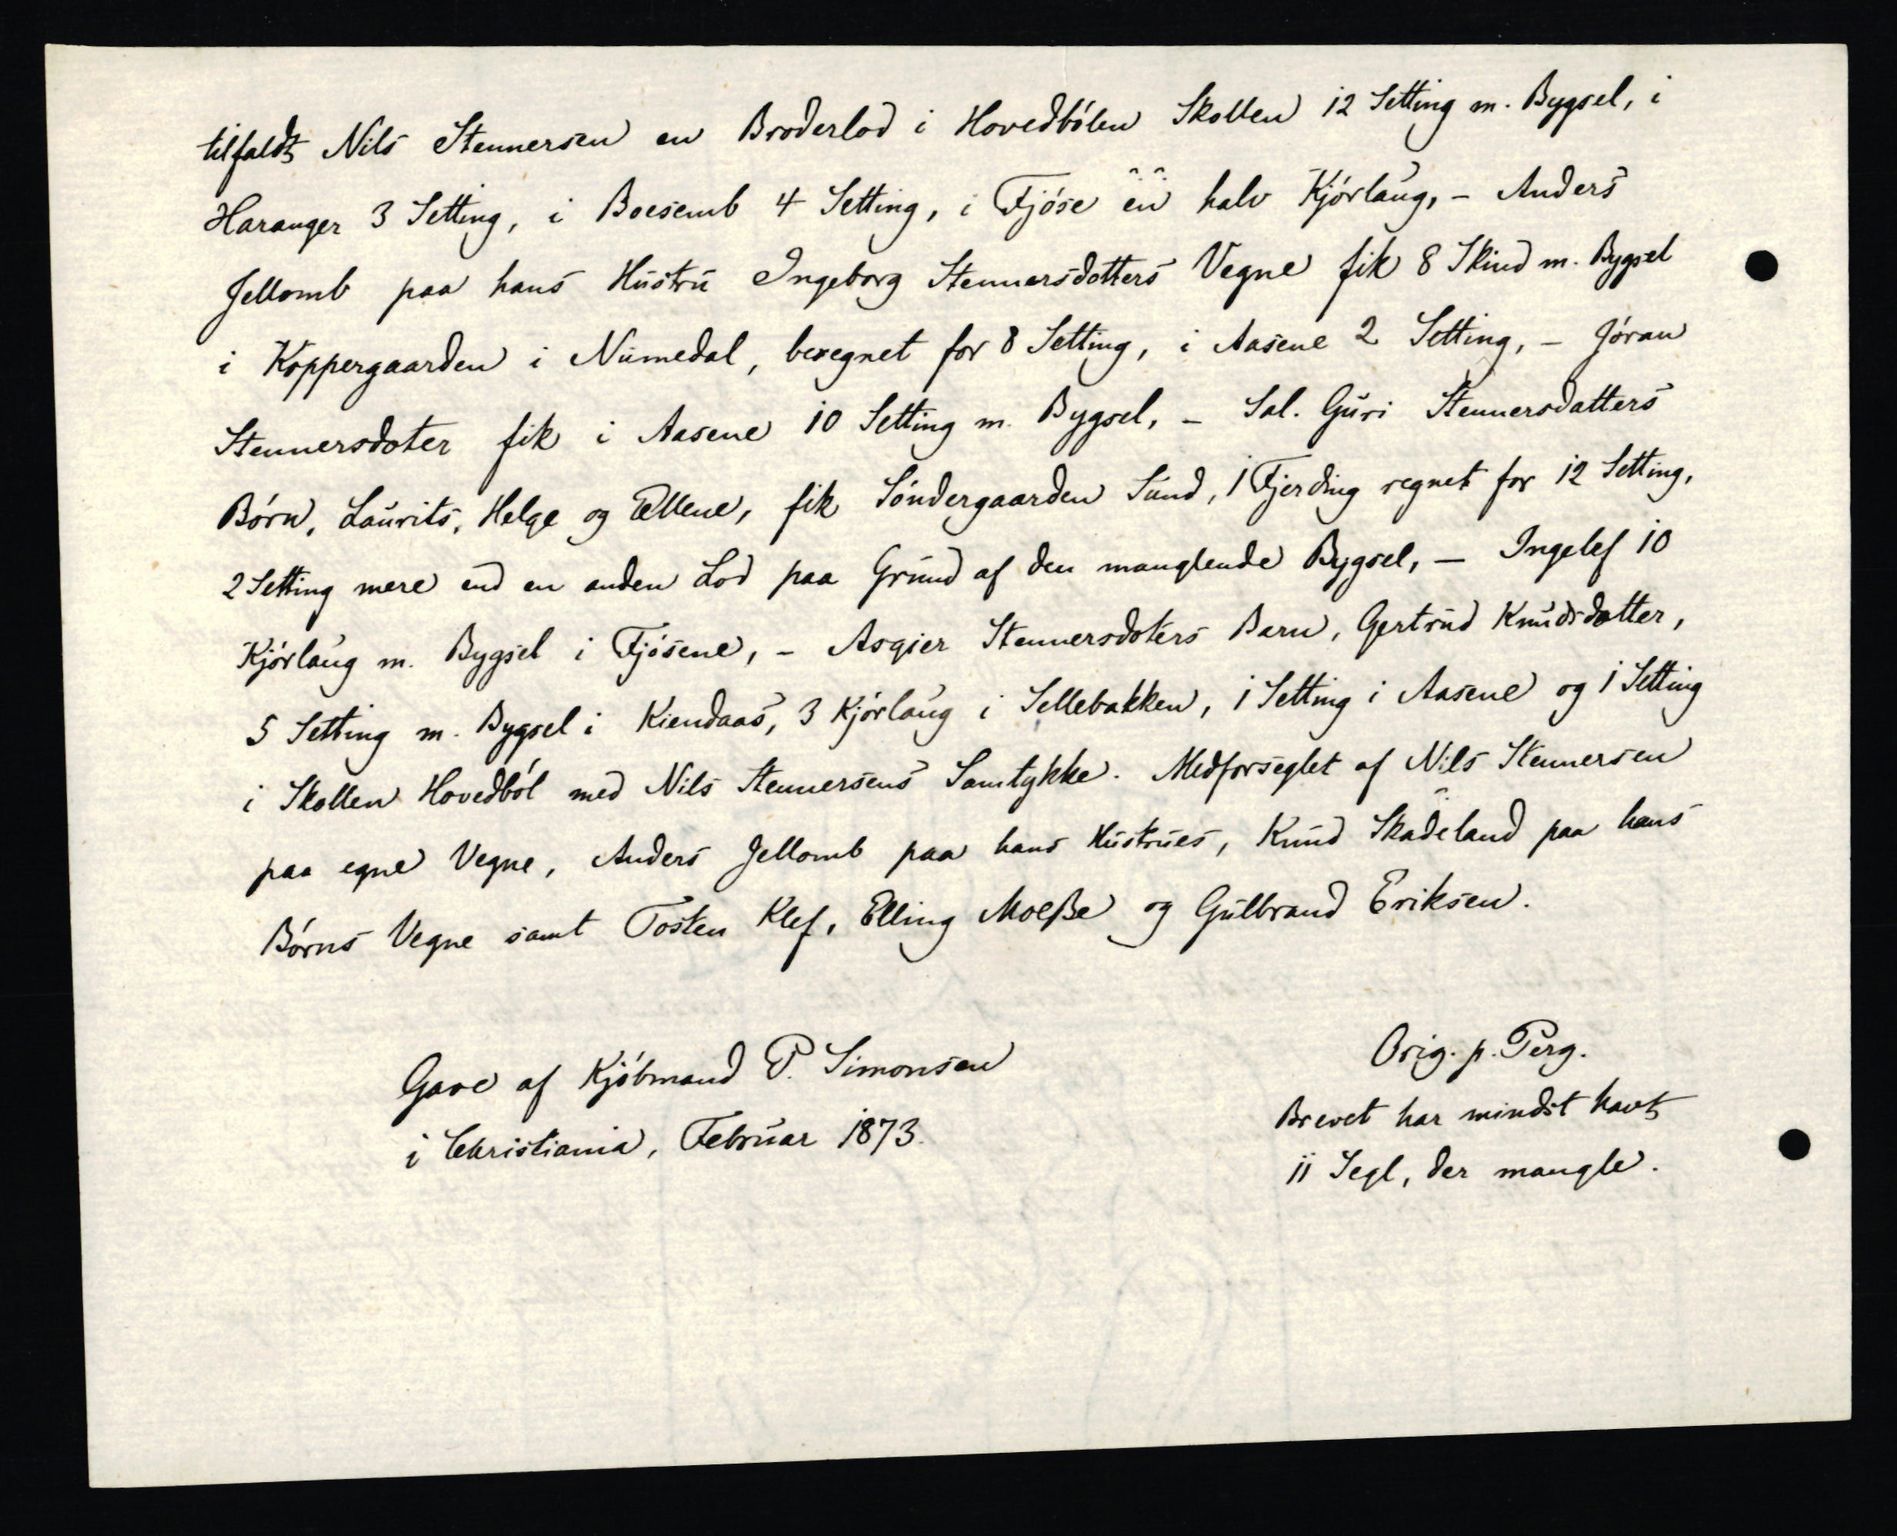 tilfaldt Nils Stennersen en Broderlod i Hovedbólen Skollen 12 Setting m. Bygsel, i
Haranger 3 Setting, i Boesemb 4 Setting, i Fjóse en halv Kjórlaug, – Anders
Jellomb paa hans Hustru Ingeborg Stennersdotters Vegne fik 8 Skind m. Bygsel
i Koppergaarden i Numedal, beregnet for 8 Setting, i Aasene 2 Setting, – Jóran
Stennersdoter fik i Aasene 10 Setting m. Bygsel, – Sal. Guri Stennersdatters
Bórn, Laurits, Helge og Ellene, fik Sóndergaarden Sund, 1 Fjerding regnet for 12 Setting,
2 Setting mere end en anden Lod paa Grund af den manglende Bygsel, – Ingelef 10
Kjórlaug m. Bygsel i Fjósene, – Asgier Stennersdoters Barn, Gertrud Knudsdotter,
5 Setting m. Bygsel i Kiendaas, 3 Kjórlaug i Sellebakken, 1 Setting i Aasene og 1 Setting
i Skollen Hovedból med Nils Stennersens Samtykke. Medforseglet af Nils Stennersen
paa egne Vegne, Anders Jellomb paa hans Hustrues, Knud Skadeland paa hans
Bórns Vegne samt Tosten Klef, Elling Moeße og Gulbrand Eriksen.
Gave af Kjóbmand P. Simonsen
i Christiania, Februar 1873.
Orig. p. Perg.
Brevet har mindst havt
11 Segl, der mangle.